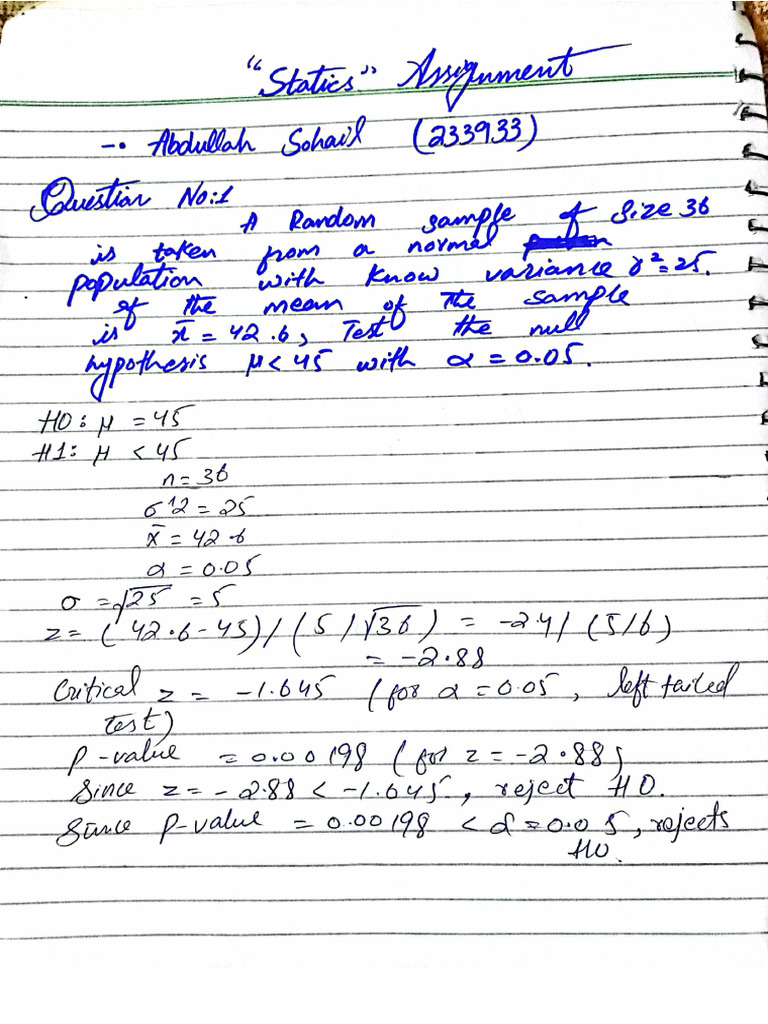 "Statics" Assignment
-• Abdullah Sohail (233933)
Question No:1
A Random sample of Size 36
is taken from a normal
population with know variance σ²=25.
if the mean of the sample
is x̄ = 42.6, Test the null
hypothesis μ < 45 with α = 0.05.
H0: μ = 45
H1: μ < 45
n = 36
σ^2 = 25
x̄ = 42.6
α = 0.05
σ = √25 = 5
z = (42.6-45)/(5/√36) = -2.4/(5/6)
= -2.88
Critical z = -1.645 (for α = 0.05, left tailed
test)
P-value = 0.00198 (for z = -2.88)
Since z = -2.88 < -1.645, reject H0.
Since P-value = 0.00198 < α = 0.05, rejects
H0.